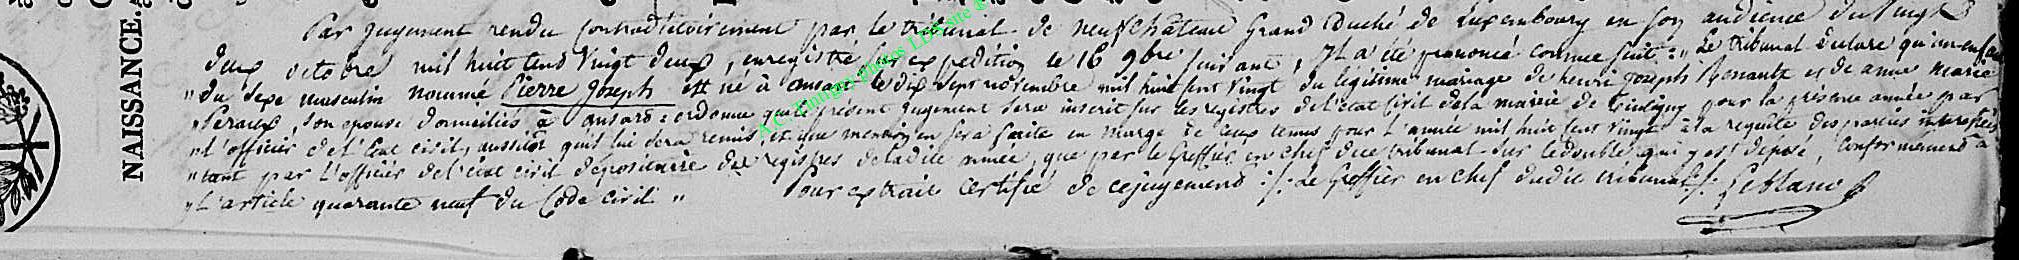 NAISSANCE.
Par jugement rendu contradictoirement par le tribunal de neufchâteau Grand Duché de Luxembourg en son audience du vingt
deux octobre mil huit cent vingt deux, enregistré sur expédition le 16 9bre suivant, Il a été prononcé comme suit : " Le tribunal declare qu'un enfant
" du sexe masculin nommé Pierre Joseph est né à ansart le dix sept novembre mil huit cent vingt du legitime mariage de henri Joseph et de anne marie
" son epouse domiciliés à ansart : ordonne que le présent Jugement sera inscrit sur les registres de l'état Civil de la mairie de Tintigny pour la présente année par
" l'officier de l'Etat civil, aussitôt qu'il lui sera remis, et que mention en sera faite en marge de ceux tenus pour L'année mil huit cent vingt à la requête des parties intéressées
" tant par L'officier de l'état civil dépositaire des registres de ladite année, que par le Greffier en chef du tribunal sur le double qui y est déposé, Conformément à
" L'article quarante neuf du Code civil " Pour extrait certifié de ce jugement :/: Le Greffier en chef dudit tribunal /: Leblanc